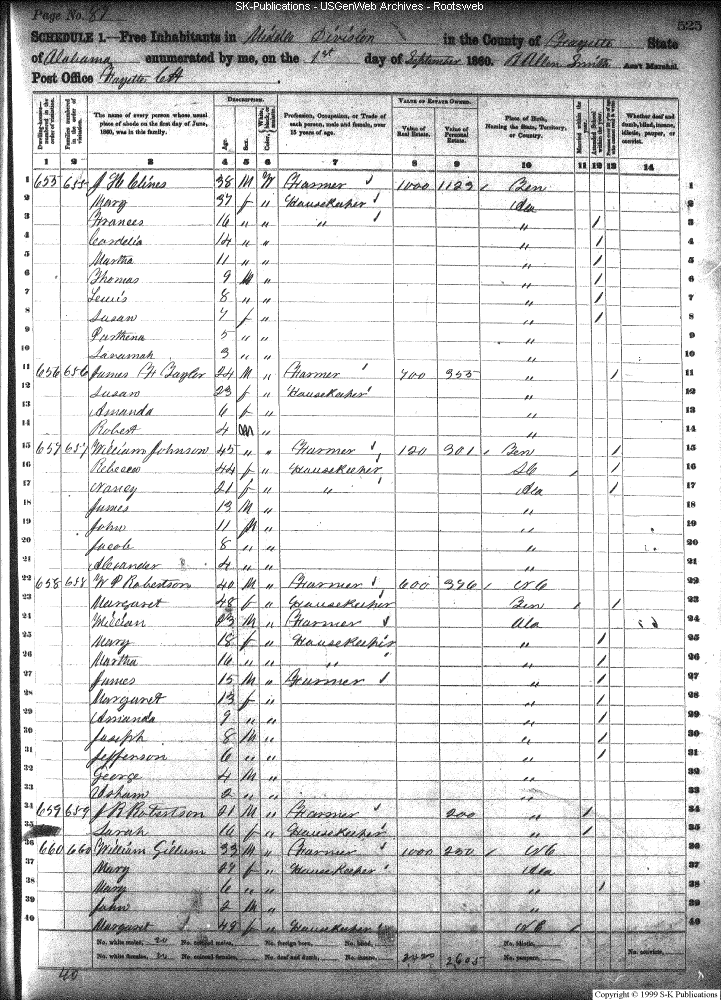 SK-Publications - USGenWeb Archives - Rootsweb
Page No. 89
525
SCHEDULE 1.—Free Inhabitants in Middle Division in the County of Fayette State
of Alabama enumerated by me, on the 1st day of September 1860. A Allen Smith Ass't Marshal.
Post Office Fayette CH
Dwelling-houses—numbered in the order of visitation.
Families numbered in the order of visitation.
The name of every person whose usual place of abode on the first day of June, 1860, was in this family.
DESCRIPTION.
Age.
Sex.
Color,
Profession, Occupation, or Trade of each person, male and female, over 15 years of age.
VALUE OF ESTATE OWNED.
Value of Real Estate.
Value of Personal Estate.
Place of Birth, Naming the State, Territory, or Country.
Married within the year.
Attended School within the year.
Whether deaf and dumb, blind, insane, idiotic, pauper, or convict.
1 2 3 4 5 6 7 8 9 10 11 12 13 14
1 655 655 J H Clines 38 M W Farmer 1000 1123 Ten 1
2 Mary 37 f " Housekeeper Ala 2
3 Frances 16 " " " " / 3
4 Cordelia 14 " " " / 4
5 Martha 11 " " " / 5
6 Thomas 9 M " " / 6
7 Lewis 8 " " " / 7
8 Susan 7 f " " / 8
9 Parthena 5 " " " 9
10 Savannah 3 " " " 10
11 656 656 James H Taylor 24 M " Farmer 700 355 " / 11
12 Susan 23 f " Housekeeper " 12
13 Amanda 6 f " " 13
14 Robert 4 M " " 14
15 657 657 William Johnson 45 " " Farmer 120 301 Ten / 15
16 Rebecca 44 f " Housekeeper SC / 16
17 Nancy 21 f " " Ala / 17
18 James 13 M " " 18
19 John 11 M " " 19
20 Jacob 8 " " " 20
21 Alexander 4 " " " 21
22 658 658 W P Robertson 40 M " Farmer 600 396 NC 22
23 Margaret 48 f " Housekeeper Ten / 23
24 William 23 M " Farmer Ala 24
25 Mary 18 f " Housekeeper " / 25
26 Martha 16 " " " " / 26
27 James 15 M " Farmer " / 27
28 Margaret 13 f " " / 28
29 Amanda 9 " " " / 29
30 Joseph 8 M " " / 30
31 Jefferson 6 " " " / 31
32 George 4 M " " 32
33 Isham 2 " " " 33
34 659 659 J R Robertson 21 M " Farmer 200 " / 34
35 Sarah 16 f " Housekeeper " / 35
36 660 660 William Gillum 33 M " Farmer 1000 230 NC 36
37 Mary 27 f " Housekeeper Ala 37
38 Mary 6 " " " / 38
39 John 2 M " " 39
40 Margaret 48 f " Housekeeper NC 40
No. white males, 20 No. colored males, No. foreign born, No. blind, No. idiotic,
No. white females, 20 No. colored females, No. deaf and dumb, No. insane, 2605 No. paupers, No. convicts,
40
Copyright © 1999 S-K Publications